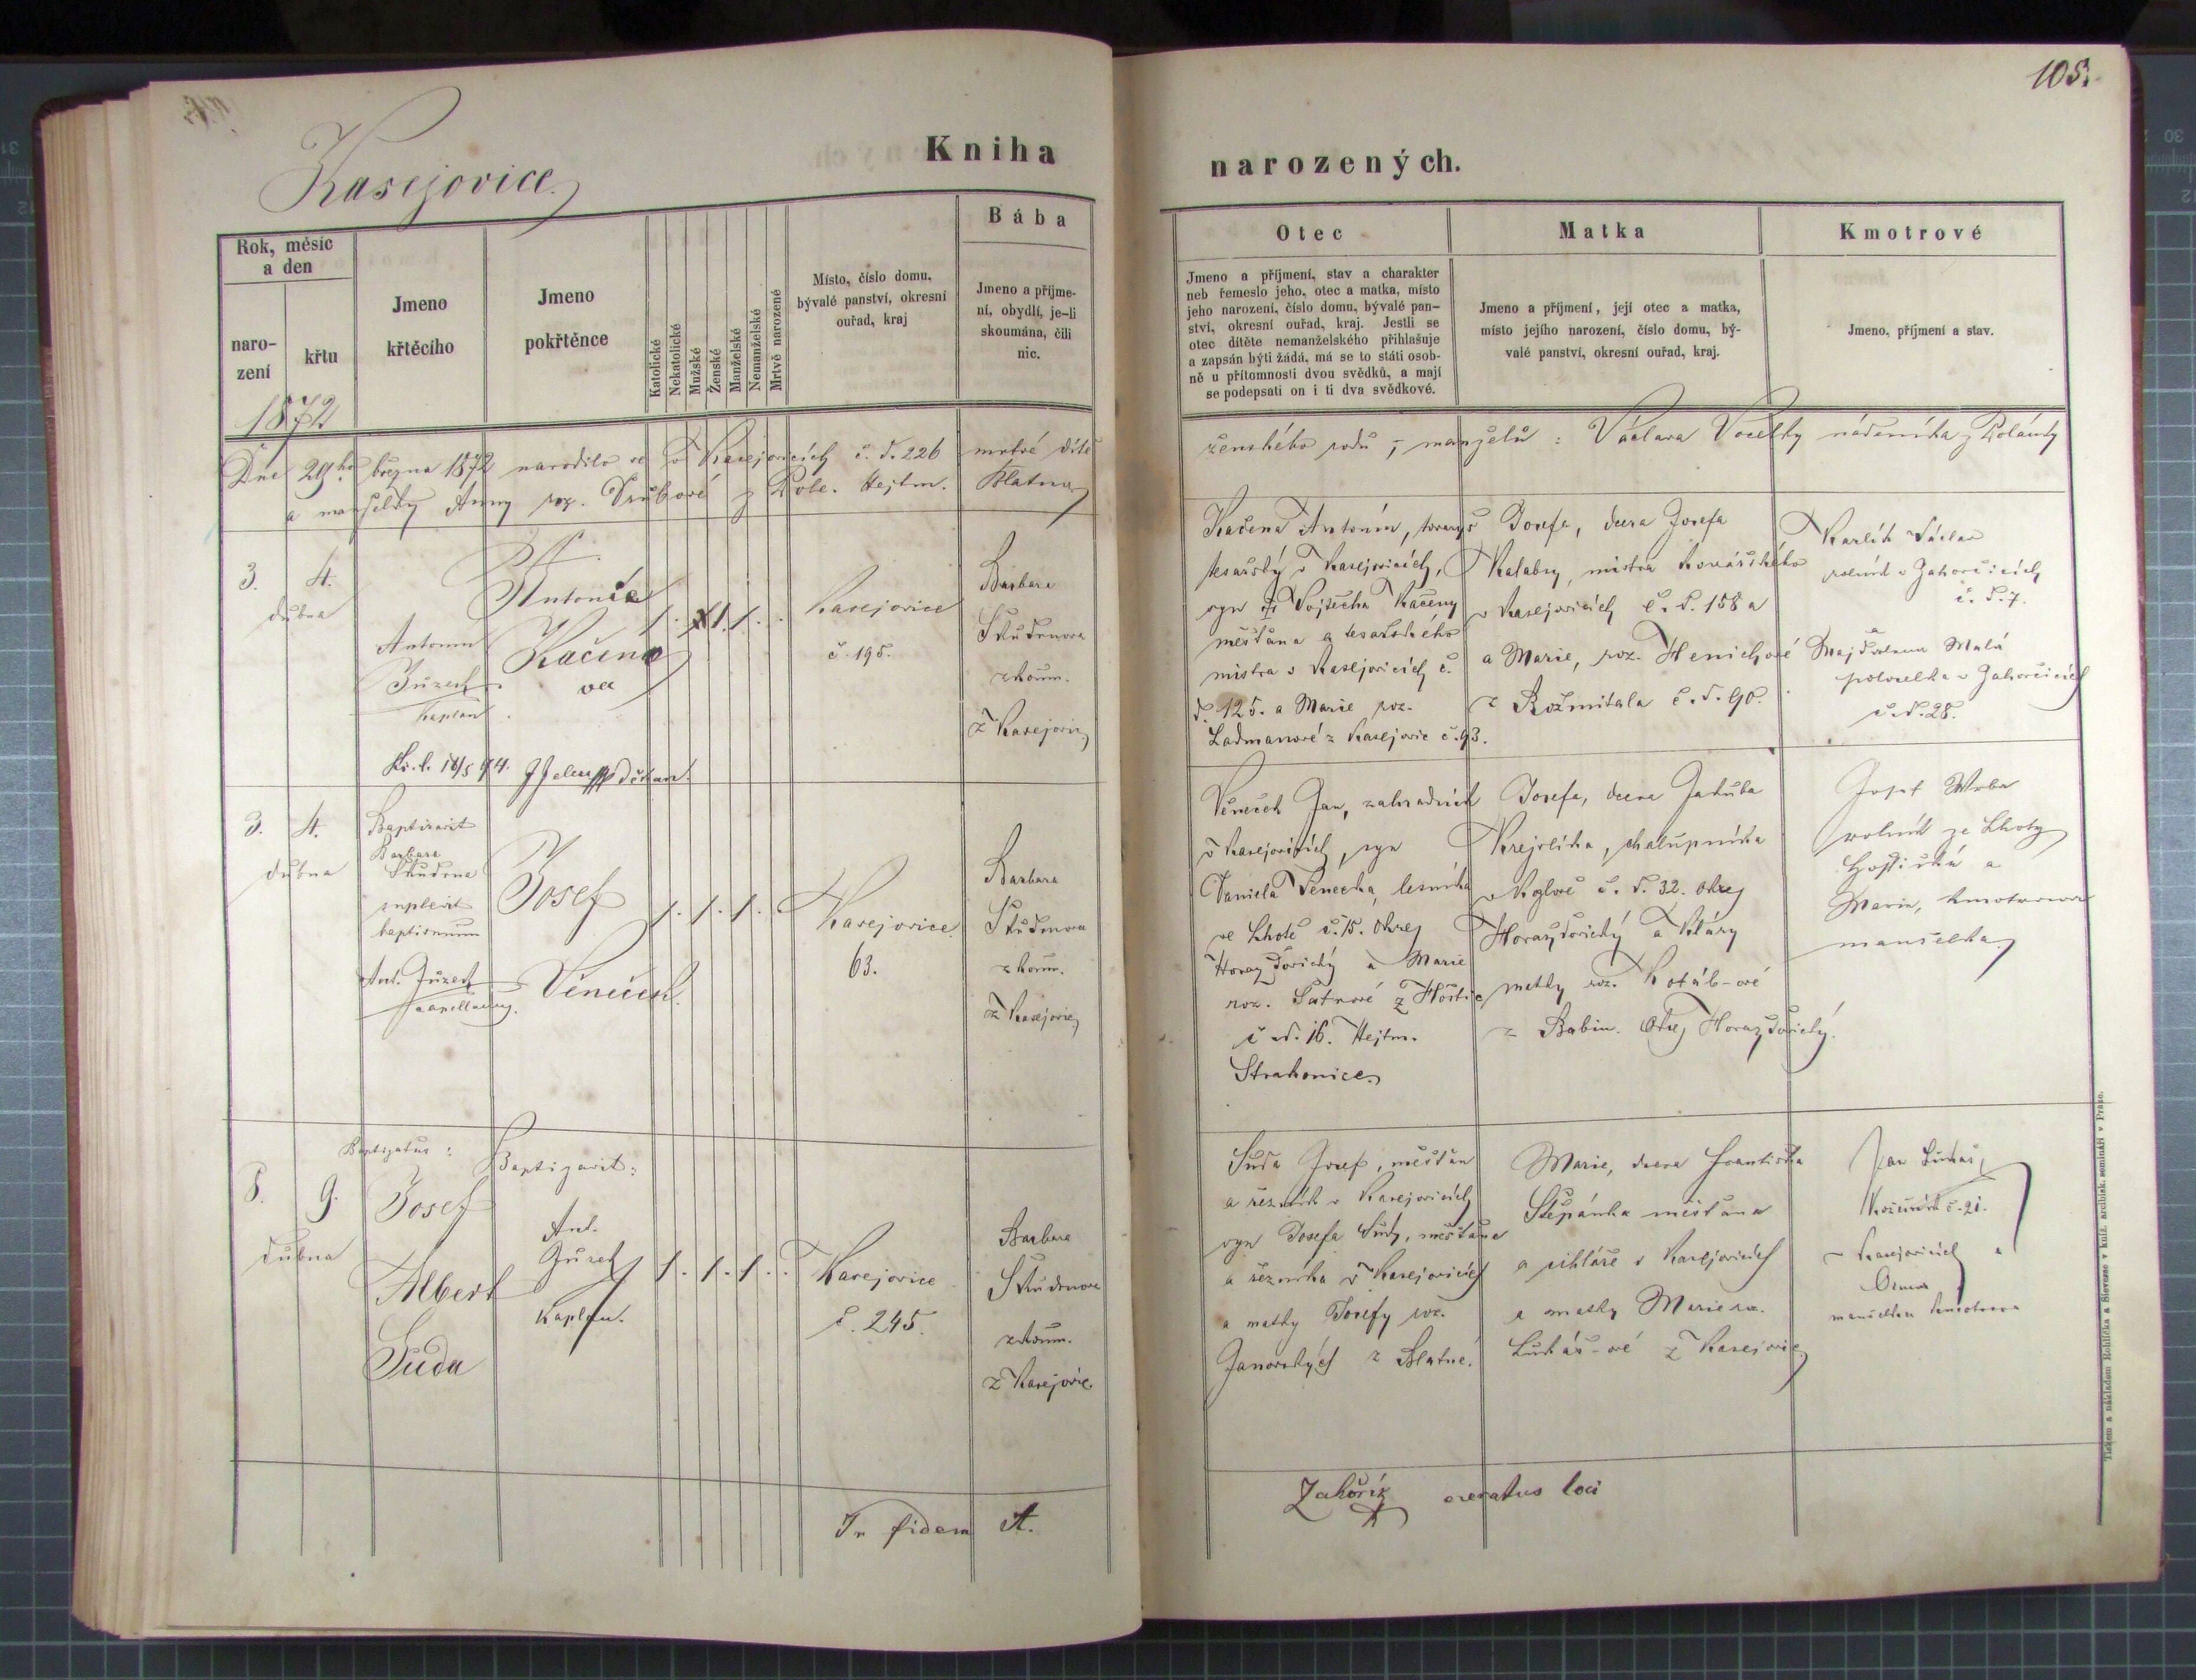 105.
Kasejovice
Kniha narozených.
Rok, měsíc
a den
naro-
zení
křtu
Jmeno
křtěcího
Jmeno
pokřtěnce
Katolické
Nekatolické
Mužské
Ženské
Manželské
Nemanželské
Mrtvě narozené
Místo, číslo domu,
bývalé panství, okresní
ouřad, kraj
Bába
Jmeno a příjme-
ní, obydlí, je-li
skoumána, čili
nic.
Otec
Jmeno a příjmení, stav a charakter
neb řemeslo jeho, otec a matka, místo
jeho narození, číslo domu, bývalé pan-
ství, okresní ouřad, kraj. Jestli se
otec dítěte nemanželského přihlašuje
a zapsán býti žádá, má se to státi osob-
ně u přítomnosti dvou svědků, a mají
se podepsati on i ti dva svědkové.
Matka
Jmeno a příjmení, její otec a matka,
místo jejího narození, číslo domu, bý-
valé panství, okresní ouřad, kraj.
Kmotrové
Jmeno, příjmení a stav.
1872
Dne 29ho března 1872 narodilo se v Kasejovicích č. d. 226 mrtvé dítě
ženského rodu, manželů: Václava Vocelky nádeníka z Polánky
a manželky Anny roz. z Pole. Hejtm. Blatna
3. 4.
dubna
Antonin
Jůzek
kaplan
Antonie
Kačena
ova
1. 1. 1.
Kasejovice
č. 195.
Barbara
Studenova
zkoum.
z Kasejovic
Kačena Antonín, tovaryš
tesařský v Kasejovicích,
syn Vojtěcha Kačeny
měšťana a tesařského
mistra v Kasejovicích č.
d. 125. a Marie roz.
Ladmanové z Kasejovic č. 93.
Josefa, dcera Josefa
Kalabzy, mistra kovářského
v Kasejovicích č. d. 158 a
a Marie, roz. Henichové
z Rožmitala č. d. 90.
Karlík Václav
rolník v Zahorčicích
č. d. 7.
a
Majdalena Malá
polovelka v Zahorčicích
č. d. 28.
3. 4.
dubna
Baptizavit
Barbara
Studena
suplevit
baptismum
Ant. Jůzek
capellanus.
Josef
Věneček.
1. 1. 1.
Kasejovice.
63.
Barbara
Studenova
zkoum.
z Kasejovic
Věneček Jan, zahradník
v Kasejovicích, syn
Daniela Věnečka, lesníka
ve Lhotě č. 15. Okres
Horažďovický a Marie
roz. z Hoštic
č. d. 16. Hejtm.
Strakonice
Josefa, dcera Jakuba
Krejcíka, chalupníka
v Kglové č. d. 32. okres
Horažďovický a Kláry
matky roz. Kotáb-ové
z Babin. Okres Horažďovický.
Josef Wrba
rolník ze Lhoty
a
Marie, kmotrova
manželka
8. 9.
dubna
Baptizatus:
Josef
Albert
Suda
Baptizavit:
Ant.
Jůzek
kaplan.
1. 1. 1.
Kasejovice
č. 245.
Barbara
Studenova
zkoum.
z Kasejovic
Suda Josef, měšťan
a řezník v Kasejovicích
syn Josefa Sudy, měšťana
a řezníka v Kasejovicích
a matky Josefy roz.
Janovských z Blatné.
Marie, dcera Františka
Štěpánka měšťana
a pihláře v Kasejovicích
a matky Marie roz.
Lukáš-ové z Kasejovic
Jan Lukáš,
Kožešník č. 21.
v Kasejovicích a
Anna
manželka kmotrova
In fidem A. Zahořík curatus loci
Tiskem a nákladem Rohlíčka a Sievesse v kníž. arcibisk. semináři v Praze.